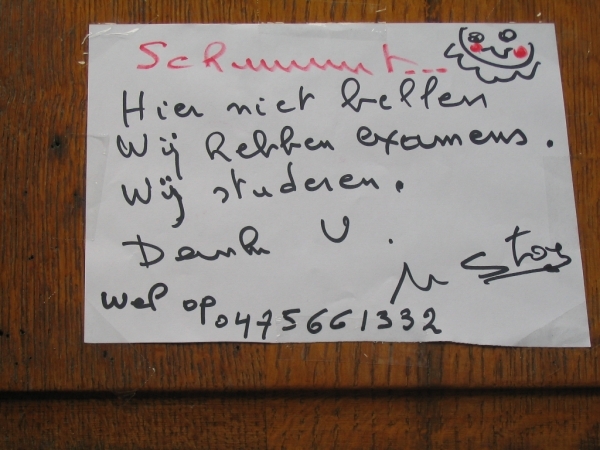 Schuuuut...
Hier niet bellen
Wij hebben examens.
Wij studeren.
Dank U.
Wel op 0475661332